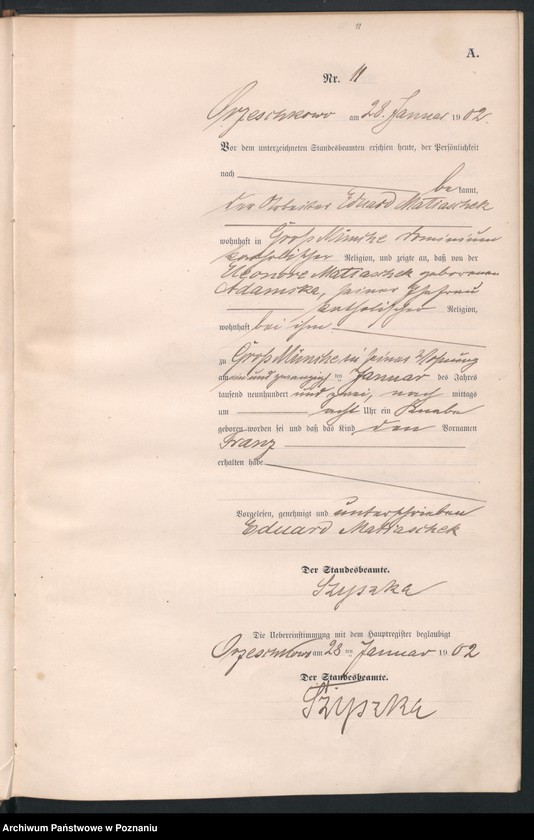 11
A.
Nr. 11
Orzeschkowo am 28. Januar 1902.
Vor dem unterzeichneten Standesbeamten erschien heute, der Persönlichkeit
nach bekannt,
der Arbeiter Eduard Matiaschek
wohnhaft in Groß Münche Dominium
katholischer Religion, und zeigte an, daß von der
Eleonore Matiaschek geborenen
Adamska, seiner Ehefrau
katholischer Religion,
wohnhaft bei ihm
zu Groß Münche in seiner Wohnung
am ein und zwanzigsten Januar des Jahres
tausend neunhundert und zwei, nach mittags
um acht Uhr ein Knabe
geboren worden sei und daß das Kind den Vornamen
Franz
erhalten habe
Vorgelesen, genehmigt und unterschrieben
Eduard Matiaschek
Der Standesbeamte.
Szyszka
Die Uebereinstimmung mit dem Hauptregister beglaubigt
Orzeschkowo am 28 ten Januar 1902
Der Standesbeamte.
Szyszka
Archiwum Państwowe w Poznaniu